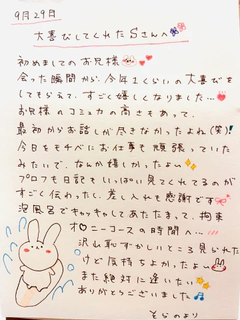 9月29日
大喜びしてくれたSさんへ
初めましてのお兄様
会った瞬間から、今年1くらいの大喜びを
してもらえて、すごく嬉しくなりました…
お兄様のコミュ力の高さもあって、
最初からお話しが尽きなかったよね(笑)!
今日をモチベにお仕事も頑張っていた
みたいで、なんか嬉しかったよぉ
プロフも日記もいっぱい見てくれてるのが
すごく伝わったし、差し入れも感謝です
泡風呂でキャッキャしてあたたまって、拘束
オ〇ニーコースの時間へ…!!!
沢山恥ずかしいところ見られた
けど気持ちよかったよぉ
また絶対に逢いたい
ありがとうございました
そらのより